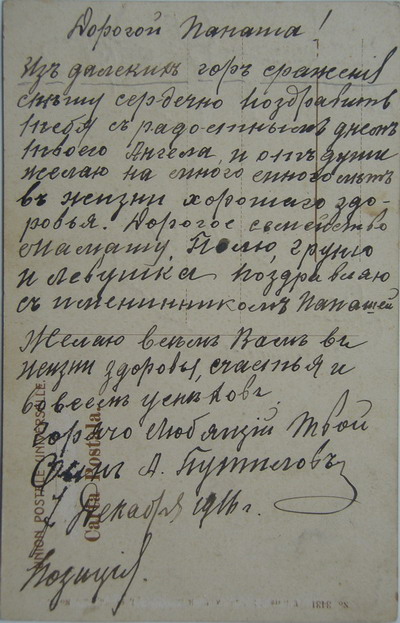 Дорогой Папаша!
Изъ далекихъ горъ сраженiя
спѣшу сердечно поздравить
тебя съ радостнымъ днемъ
твоего Ангела, и отъ души
желаю на много много лѣтъ
въ жизни хорошаго здо-
ровья. Дорогое семейство
Мамашу, Полю, Груню
и Левушка поздравляю
съ имянинникомъ Папашей
Желаю всѣмъ Вамъ въ
жизни здоровья, счастья и
во всемъ успѣховъ.
Горячо Любящiй Твой
Сынъ А. Путиловъ
7 Декабря 1916 г.
Позицiя.
UNION POSTALE UNIVERSELLE.
Carta Postala.